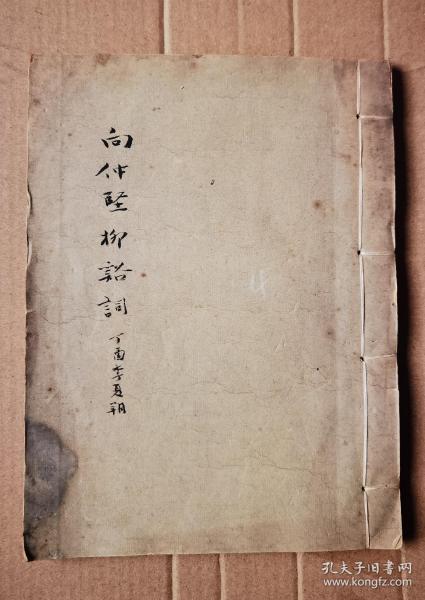 向仲堅柳谿詞 丁酉季夏朔
孔夫子旧书网
www.kongfz.com